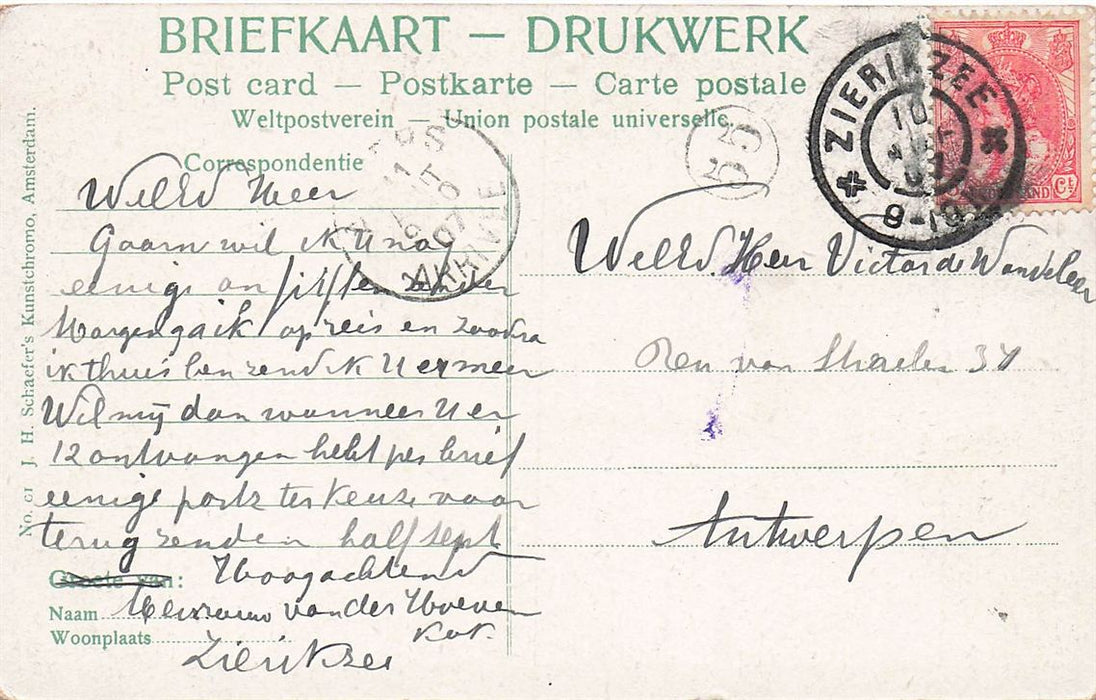 BRIEFKAART — DRUKWERK
Post card — Postkarte — Carte postale
Weltpostverein — Union postale universelle.
Correspondentie
WelEd Heer
Gaarn wil ik U nog
eenige
Morgen ga ik op reis en zoodra
ik thuis ben zend ik U er meer
Wil mij dan wanneer U er
12 ontvangen hebt per brief
eenige portz ter keuze voor
terug zenden half sept
Groete van: Hoogachtend
Naam Mevrouw van der Hoeven
Kok.
Woonplaats
Zierikzee
No. 61 J. H. Schaefer's Kunstchromo, Amsterdam.
55
ZIERIKZEE
10
9-10
Ct
WelEd. Heer Victor de
37
Antwerpen